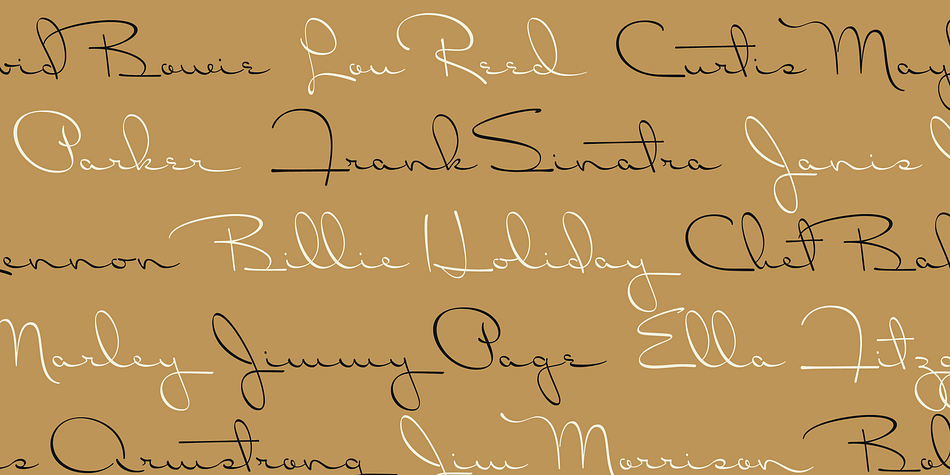 vid Bowie Lou Reed Curtis May
Parker Frank Sinatra Janis
ennon Billie Holiday Chet Bak
Marley Jimmy Page Ella Fitzg
s Armstrong Jim Morrison Bo